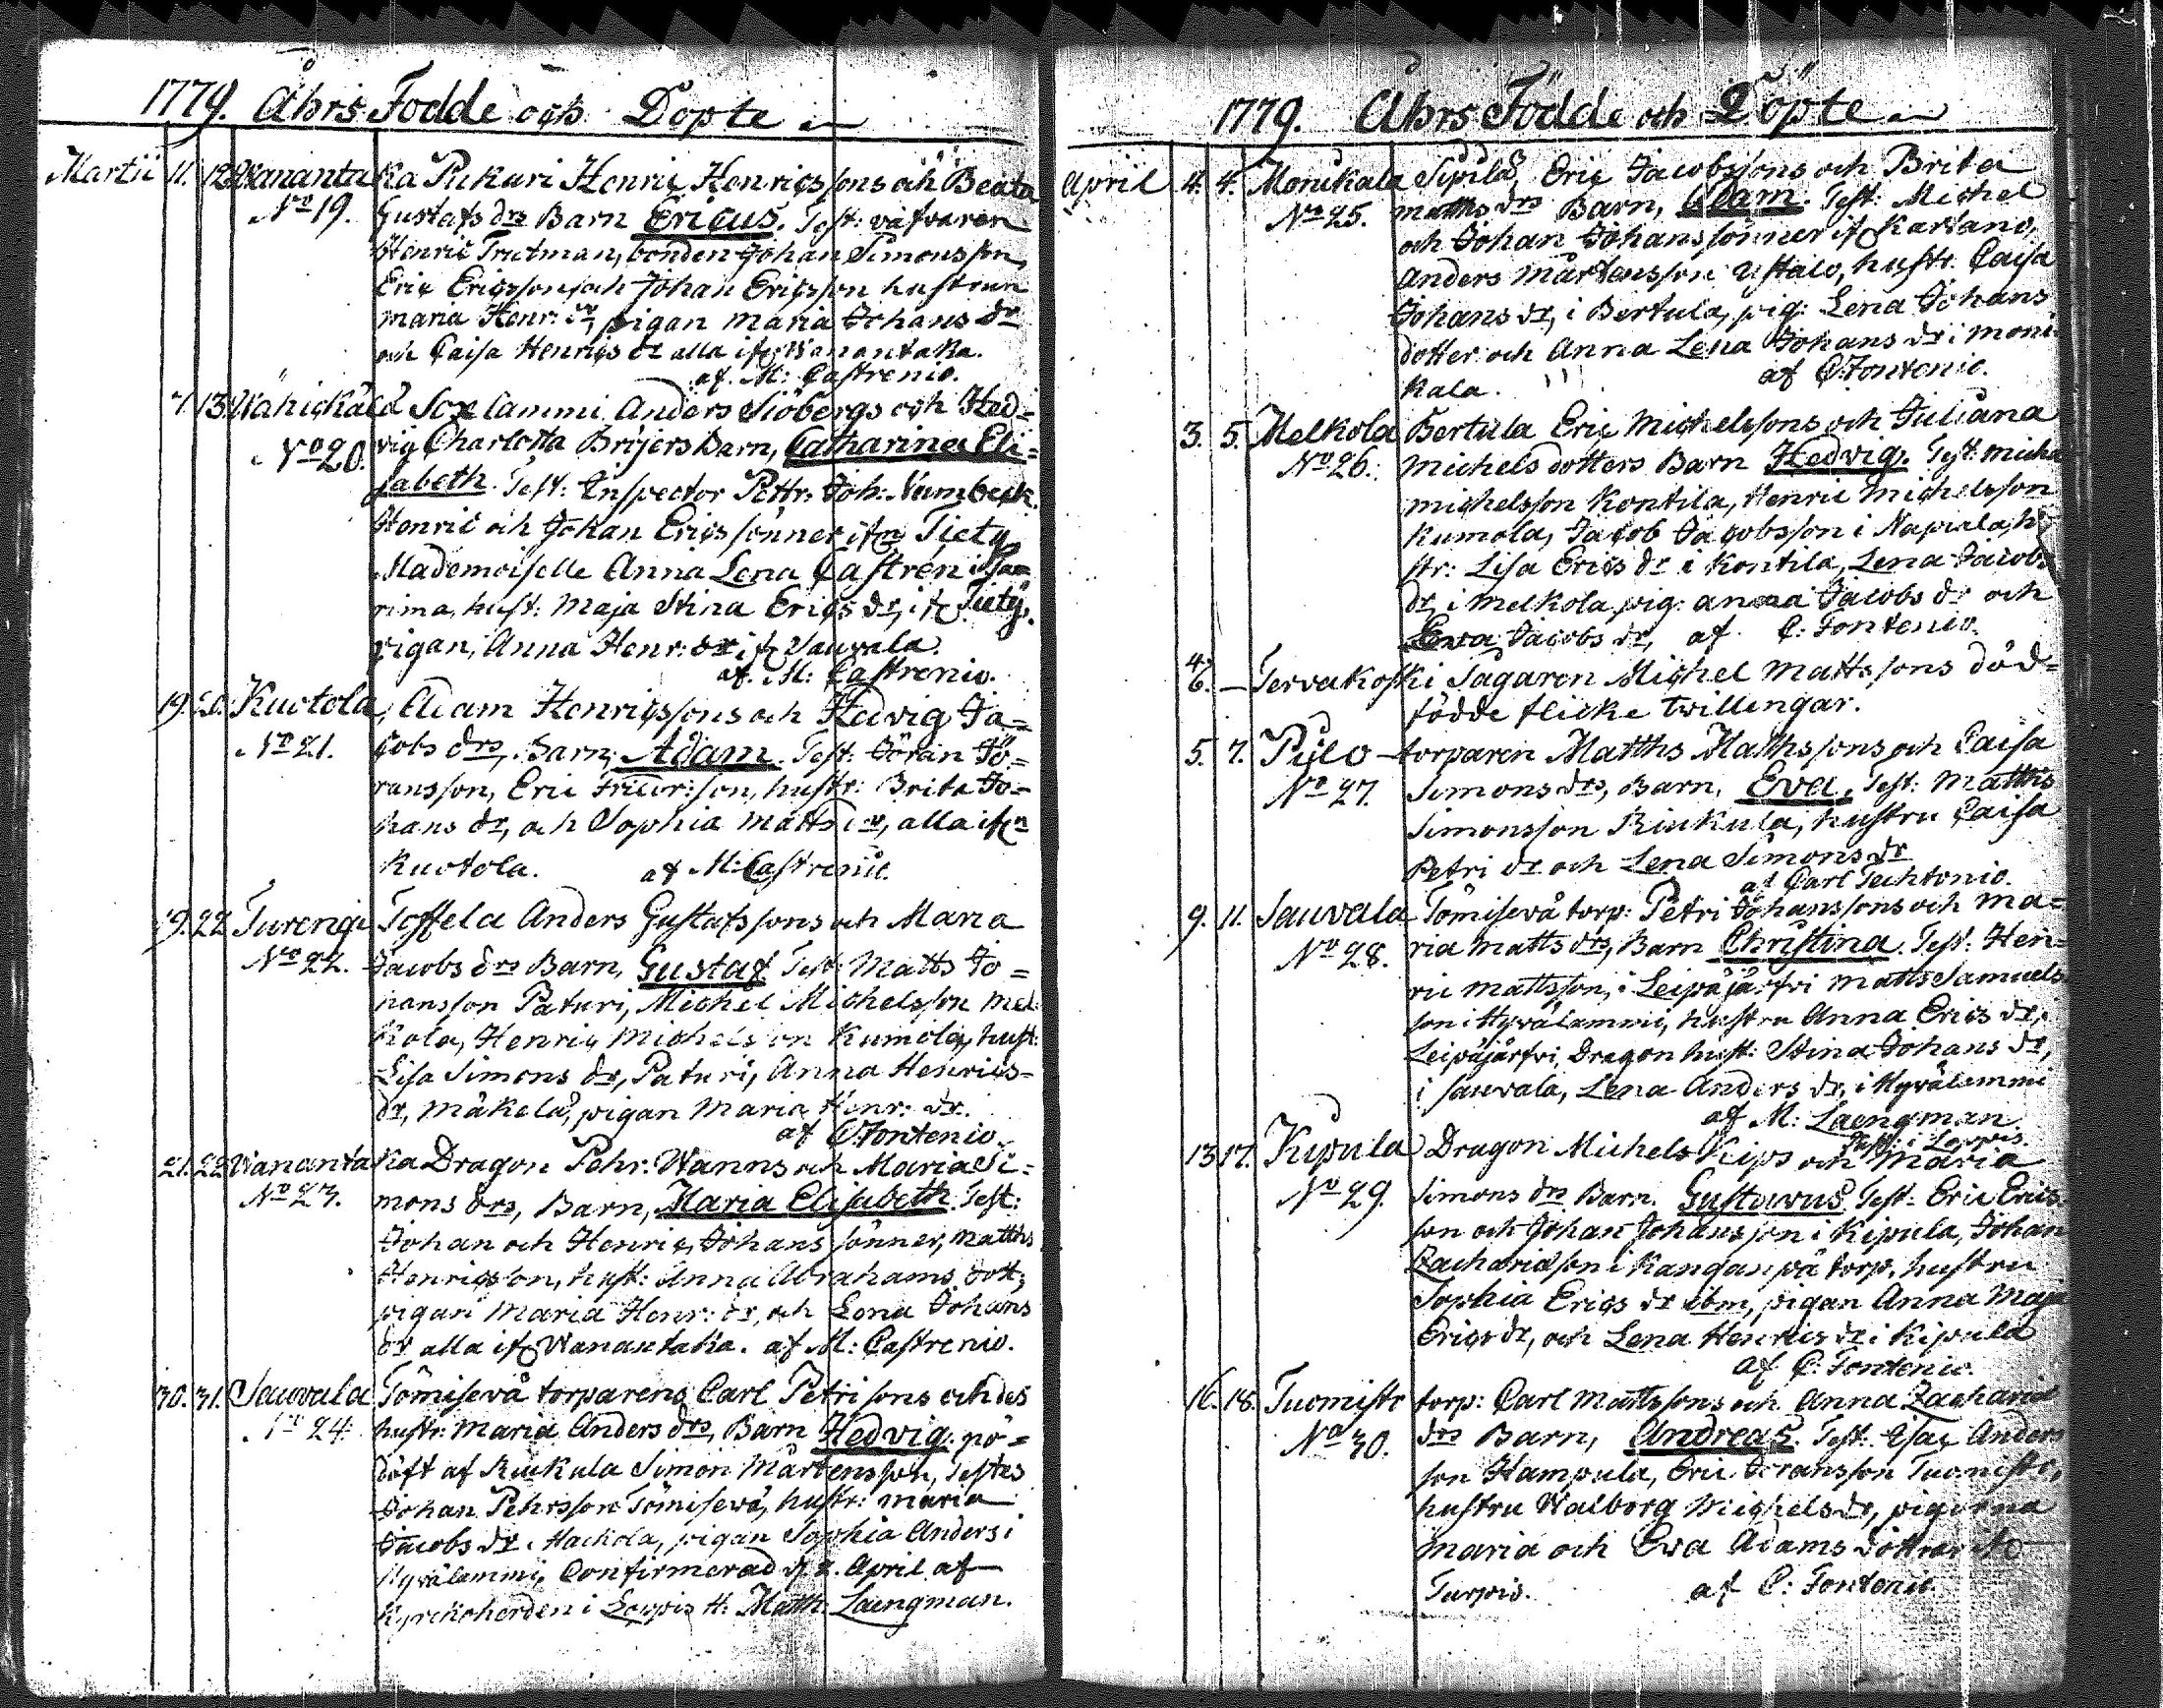 1779. Åhrs Födde och Döpte
Martii 11. 12. Wananta Ka Pukuri Henric Henricssons och Beata
No 19. Gustafs drs Barn Ericus. Test: väfvaren
Henric Trutman, bonden Johan Simonsson,
Eric Ericsson och Johan Ericsson hustrun
Maria Henr: dr, pigan Maria Johans dr
och Caisa Henrics dr alla ifr Wanantaka.
af. M: Castrenio.
7. 13. Wähickälä Soxlammi Anders Siöbergs och Hed=
No 20. vig Charlotta Brijers Barn, Catharina Eli=
sabeth. Test: Inspector Pettr: Joh: Numbeck
Henric och Johan Ericssönner ifrn Tiety
Mademoiselle Anna Lena Castren i
rima, hust: Maja Stina Erics dr, ifr Tiety,
pigan, Anna Henr: dr ifr Sauvala.
af. M: Castrenio.
19. 20. Kuotola, Adam Henricssons och Hedvig Ja=
No 21. cobs drs, Barn, Adam. Test: Jöran Jö=
ransson, Eric son, hustr: Brita Jo=
hans dr, och Sophia Matts dr, alla ifrn
Kuotola. af M: Castrenio.
19. 22. Turengi Toffela Anders Gustafssons och Maria
No 22. Jacobs drs Barn, Gustaf. Test: Matts Jo=
hansson Paturi, Michel Michelsson Mel
kola, Henric Michelsson Kumola, hust:
Lisa Simons dr, Paturi, Anna Henrics=
dr, Mäkelä, pigan Maria Henr: dr.
af C: Fontenio.
21. 22. Wananta Ka Dragon Pehr: Wanns och Maria Si=
No 23. mons drs, Barn, Maria Elisabeth. Test:
Johan och Henric Johans sönner, Matths
Henricsson, hust: Anna Abrahams dott,
pigan Maria Henr: dr, och Lena Johans
dr alla ifr Wanantaka. af M: Castrenio.
30. 31. Sauvala Tömisevä torparens Carl Petrisons och des
No 24. hustr: Maria Anders drs, Barn Hedvig. nö=
döft af Riukula Simon Mårtensson, Testes
Johan Pehrsson Tömisevä, hustr: Maria
Jacobs dr. i Hackola, pigan Sophia Anders i
Hyvälammi, Confirmerad d. 2. April af
Kyrckoherden i Loppis H: Matth. Laengman.
1779. Åhrs Födde och Döpte
April 4. 4. Monikala Sipilä, Eric Jacobssons och Brita
No 25. Matths drs Barn, Adam. Test: Michel
och Johan Johanssönner ifr Kartano,
Anders Mårtensson Ustalo, hustr. Caisa
Johans dr, i Bertula, pig: Lena Johans
dotter och Anna Lena Johans dr i Moni
kala. af C. Fontenio.
3. 5. Melkola Bertula Eric Michelssons och Juliana
No 26. Michels dotters Barn Hedvig. Test: Miche
Michelsson Kontila, Henric Michelsson
Kumola, Jacob Jacobsson i Napiala, h
str: Lisa Erics dr i Kontila, Lena Jacobs
dr, i Melkola, pig: Anna Jacobs dr och
Ewa Jacobs dr, af C: Fontenio.
4. 6. — Tervakoski Sågaren Michel Mattssons död=
födde flicke twillingar.
5. 7. Puco - torparen Matths Matthssons och Caisa
No 27. Simons drs, Barn, Eva, Test: Matths
Simonsson Riukula, hustru Caisa
Petri dr och Lena Simons dr
af Carl Techtonio.
9. 11. Sauvala Tömisevä torp: Petri Johanssons och Ma=
No 28. ria Matts drs, Barn Christina. Test: Hen=
ric Mattsson, i Leipäjärfvi Matts Samuels
son i Hyvälammi, hustru Anna Erics dr, i
Leipäjärfvi, Dragon hust: Stina Johans dr,
i Sauvala, Lena Anders dr, i Hyvälammi
af M: Laengman.
Past: i Loppis.
13 17. Kipula Dragon Michels Kips och Maria
No 29. Simons drs Barn. Gustavus. Test: Eric Erics
son och Johan Johansson i Kipula, Johan
Zachariæson i Kangas på torp, hustru
Sophia Erics dr ibm, pigan Anna Maja
Erics dr, och Lena Henrics dr i Kipula
af C: Fontenio.
16. 18. Tuomistr torp: Carl Mattssons och Anna Zachariæ
No 30. drs Barn, Andreas. Test: Esac Anders
son Hampula, Eric Göransson Tuomisto,
hustru Walborg Michels dr, pigorna
Maria och Eva Adams döttrar ifr
Turpis. af C: Fontenio.